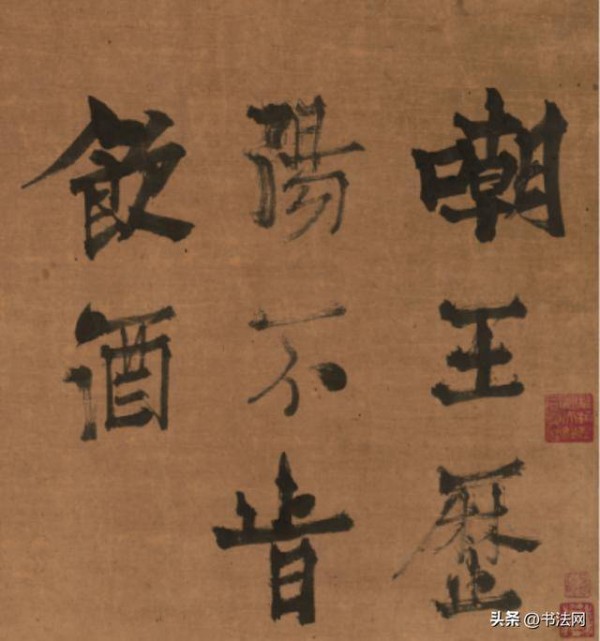 嘲王歷
陽不肯
飲酒
头条 @书法网